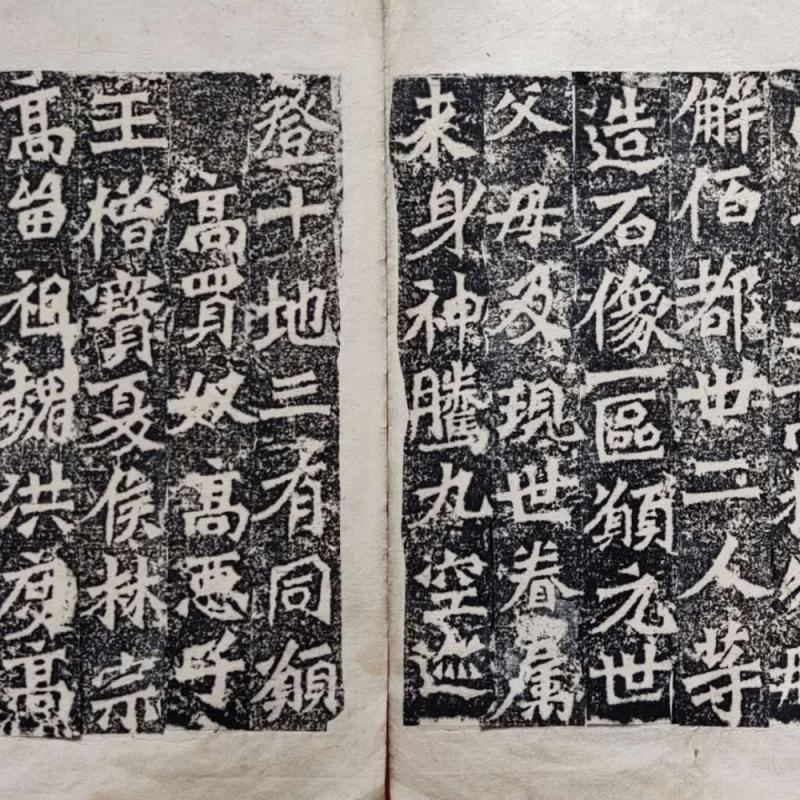 解佰都丗二人等
造石像一區願元世
父母及現世眷属
来身神騰九空迹
登十地三有同願
高買奴高惡子
王僧寶夏侯林宗
高畄祖魏洪度高